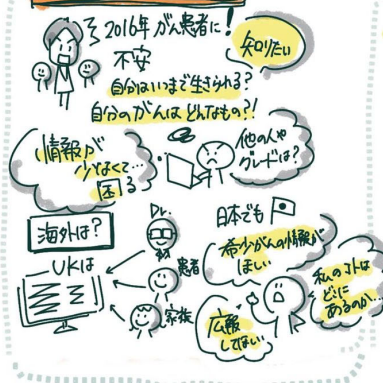 2016年 がん患者に!
不安
知りたい
自分はいつまで生きられる?
自分のがんは どんなもの?!
情報が
少なくて…
困る
他の人や
グレードは?
海外は?
UKは
Dr.
患者
家族
日本でも
希少がんの情報が
ほしい
広報
してほしい
私のコトは
どこに
あるのか…